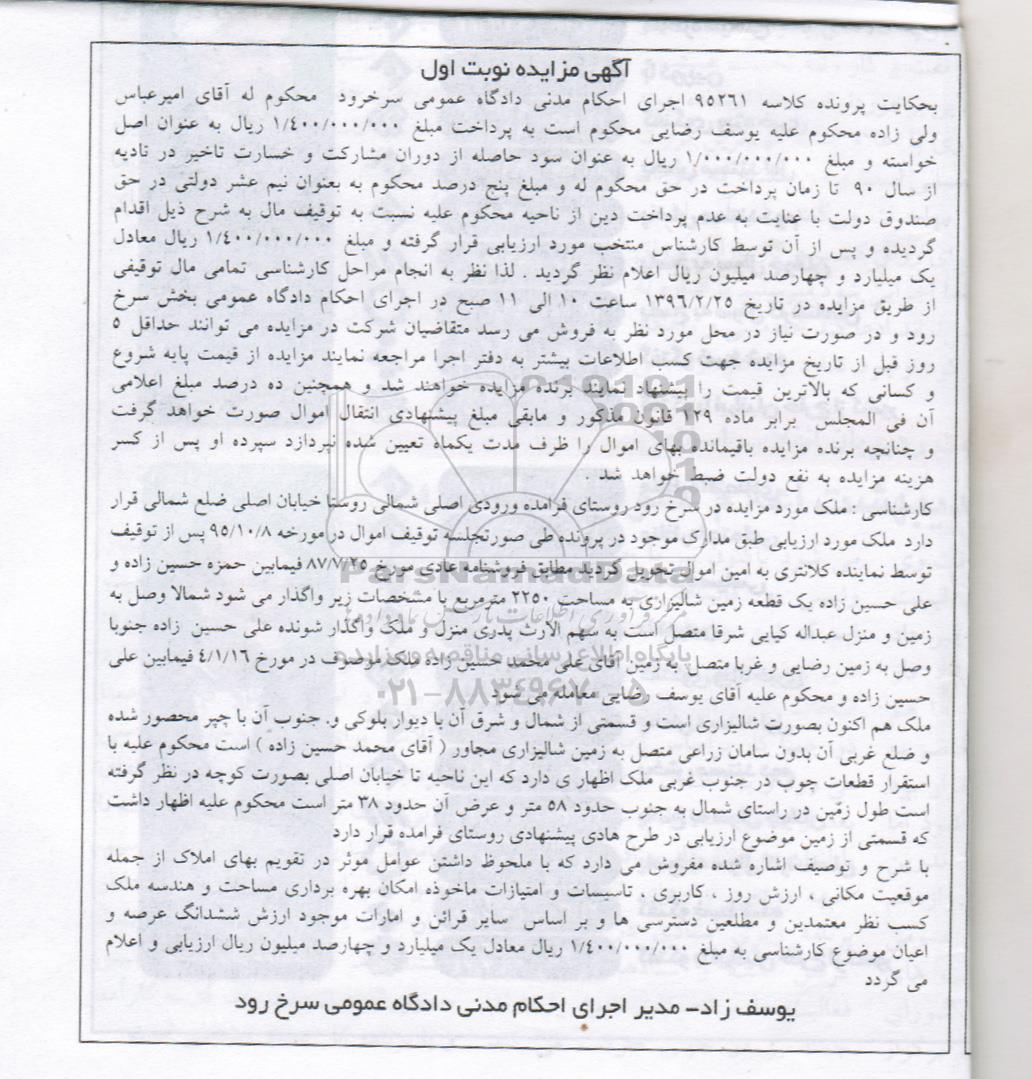 آگهی مزایده نوبت اول
بحکایت پرونده کلاسه ۹۵۲۶۱ اجرای احکام مدنی دادگاه عمومی سرخرود محکوم له آقای امیرعباس
ولی زاده محکوم علیه یوسف رضایی محکوم است به پرداخت مبلغ ۱/۴۰۰/۰۰۰/۰۰۰ ریال به عنوان اصل
خواسته و مبلغ ۱/۰۰۰/۰۰۰/۰۰۰ ریال به عنوان سود حاصله از دوران مشارکت و خسارت تاخیر در تادیه
از سال ۹۰ تا زمان پرداخت در حق محکوم له و مبلغ پنج درصد محکوم به بعنوان نیم عشر دولتی در حق
صندوق دولت با عنایت به عدم پرداخت دین از ناحیه محکوم علیه نسبت به توقیف مال به شرح ذیل اقدام
گردیده و پس از آن توسط کارشناس منتخب مورد ارزیابی قرار گرفته و مبلغ ۱/۴۰۰/۰۰۰/۰۰۰ ریال معادل
یک میلیارد و چهارصد میلیون ریال اعلام نظر گردید . لذا نظر به انجام مراحل کارشناسی تمامی مال توقیفی
از طریق مزایده در تاریخ ۱۳۹۶/۲/۲۵ ساعت ۱۰ الی ۱۱ صبح در اجرای احکام دادگاه عمومی بخش سرخ
رود و در صورت نیاز در محل مورد نظر به فروش می رسد متقاضیان شرکت در مزایده می توانند حداقل ۵
روز قبل از تاریخ مزایده جهت کسب اطلاعات بیشتر به دفتر اجرا مراجعه نمایند مزایده از قیمت پایه شروع
و کسانی که بالاترین قیمت را پیشنهاد نمایند برنده مزایده خواهند شد و همچنین ده درصد مبلغ اعلامی
آن فی المجلس برابر ماده ۱۲۹ قانون مذکور و مابقی مبلغ پیشنهادی انتقال اموال صورت خواهد گرفت
و چنانچه برنده مزایده باقیمانده بهای اموال را ظرف مدت یکماه تعیین شده نپردازد سپرده او پس از کسر
هزینه مزایده به نفع دولت ضبط خواهد شد .
کارشناسی : ملک مورد مزایده در سرخ رود روستای فرامده ورودی اصلی شمالی روستا خیابان اصلی ضلع شمالی قرار
دارد ملک مورد ارزیابی طبق مدارک موجود در پرونده طی صورتجلسه توقیف اموال در مورخه ۹۵/۱۰/۸ پس از توقیف
توسط نماینده کلانتری به امین اموال تحویل گردید مطابق فروشنامه عادی مورخ ۸۷/۷/۲۵ فیمابین حمزه حسین زاده و
علی حسین زاده یک قطعه زمین شالیزاری به مساحت ۲۲۵۰ مترمربع با مشخصات زیر واگذار می شود شمالا وصل به
زمین و منزل عبداله کیایی شرقا متصل است به سهم الارث پدری منزل و ملک واگذار شونده علی حسین زاده جنوبا
وصل به زمین رضایی و غربا متصل به زمین آقای علی محمد حسین زاده ملک موصوف در مورخ ۴/۱/۱۶ فیمابین علی
حسین زاده و محکوم علیه آقای یوسف رضایی معامله می شود
ملک هم اکنون بصورت شالیزاری است و قسمتی از شمال و شرق آن با دیوار بلوکی و. جنوب آن با چپر محصور شده
و ضلع غربی آن بدون سامان زراعی متصل به زمین شالیزاری مجاور ( آقای محمد حسین زاده ) است محکوم علیه با
استقرار قطعات چوب در جنوب غربی ملک اظهار ی دارد که این ناحیه تا خیابان اصلی بصورت کوچه در نظر گرفته
است طول زمین در راستای شمال به جنوب حدود ۵۸ متر و عرض آن حدود ۳۸ متر است محکوم علیه اظهار داشت
که قسمتی از زمین موضوع ارزیابی در طرح هادی پیشنهادی روستای فرامده قرار دارد
با شرح و توصیف اشاره شده مفروش می دارد که با ملحوظ داشتن عوامل موثر در تقویم بهای املاک از جمله
موقعیت مکانی ، ارزش روز ، کاربری . تاسیسات و امتیازات ماخوذه امکان بهره برداری مساحت و هندسه ملک
کسب نظر معتمدین و مطلعین دسترسی ها و بر اساس سایر قرائن و امارات موجود ارزش ششدانگ عرصه و
اعیان موضوع کارشناسی به مبلغ ۱/۴۰۰/۰۰۰/۰۰۰ ریال معادل یک میلیارد و چهارصد میلیون ریال ارزیابی و اعلام
می گردد
یوسف زاد- مدیر اجرای احکام مدنی دادگاه عمومی سرخ رود
ParsNamadData
پایگاه اطلاع رسانی مناقصه و مزایده
۰۲۱-۸۸۳۴۹۶۷۰-۵